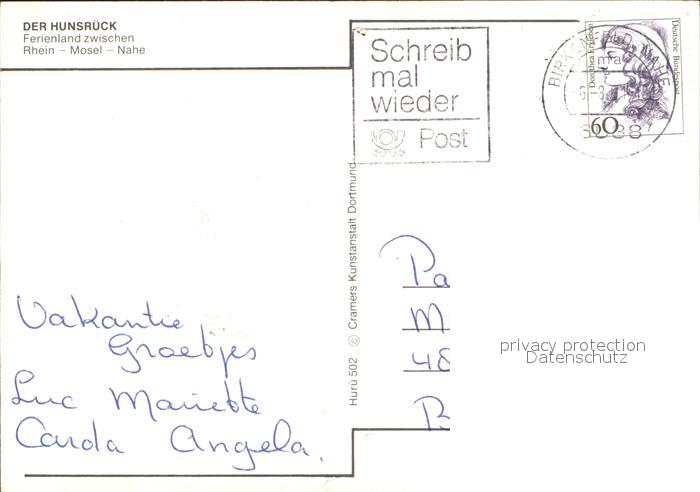 DER HUNSRÜCK
Ferienland zwischen
Rhein – Mosel – Nahe
Schreib
mal
wieder
Post
BIRKENFELD, NAHE
Deutsche Bundespost
Dorothea Erxleben
60
Hurü 502 © Cramers Kunstanstalt Dortmund
Vakantie
Groetjes
Luc Mariette
Carda Angela.
Pa
M
48
B
privacy protection
Datenschutz